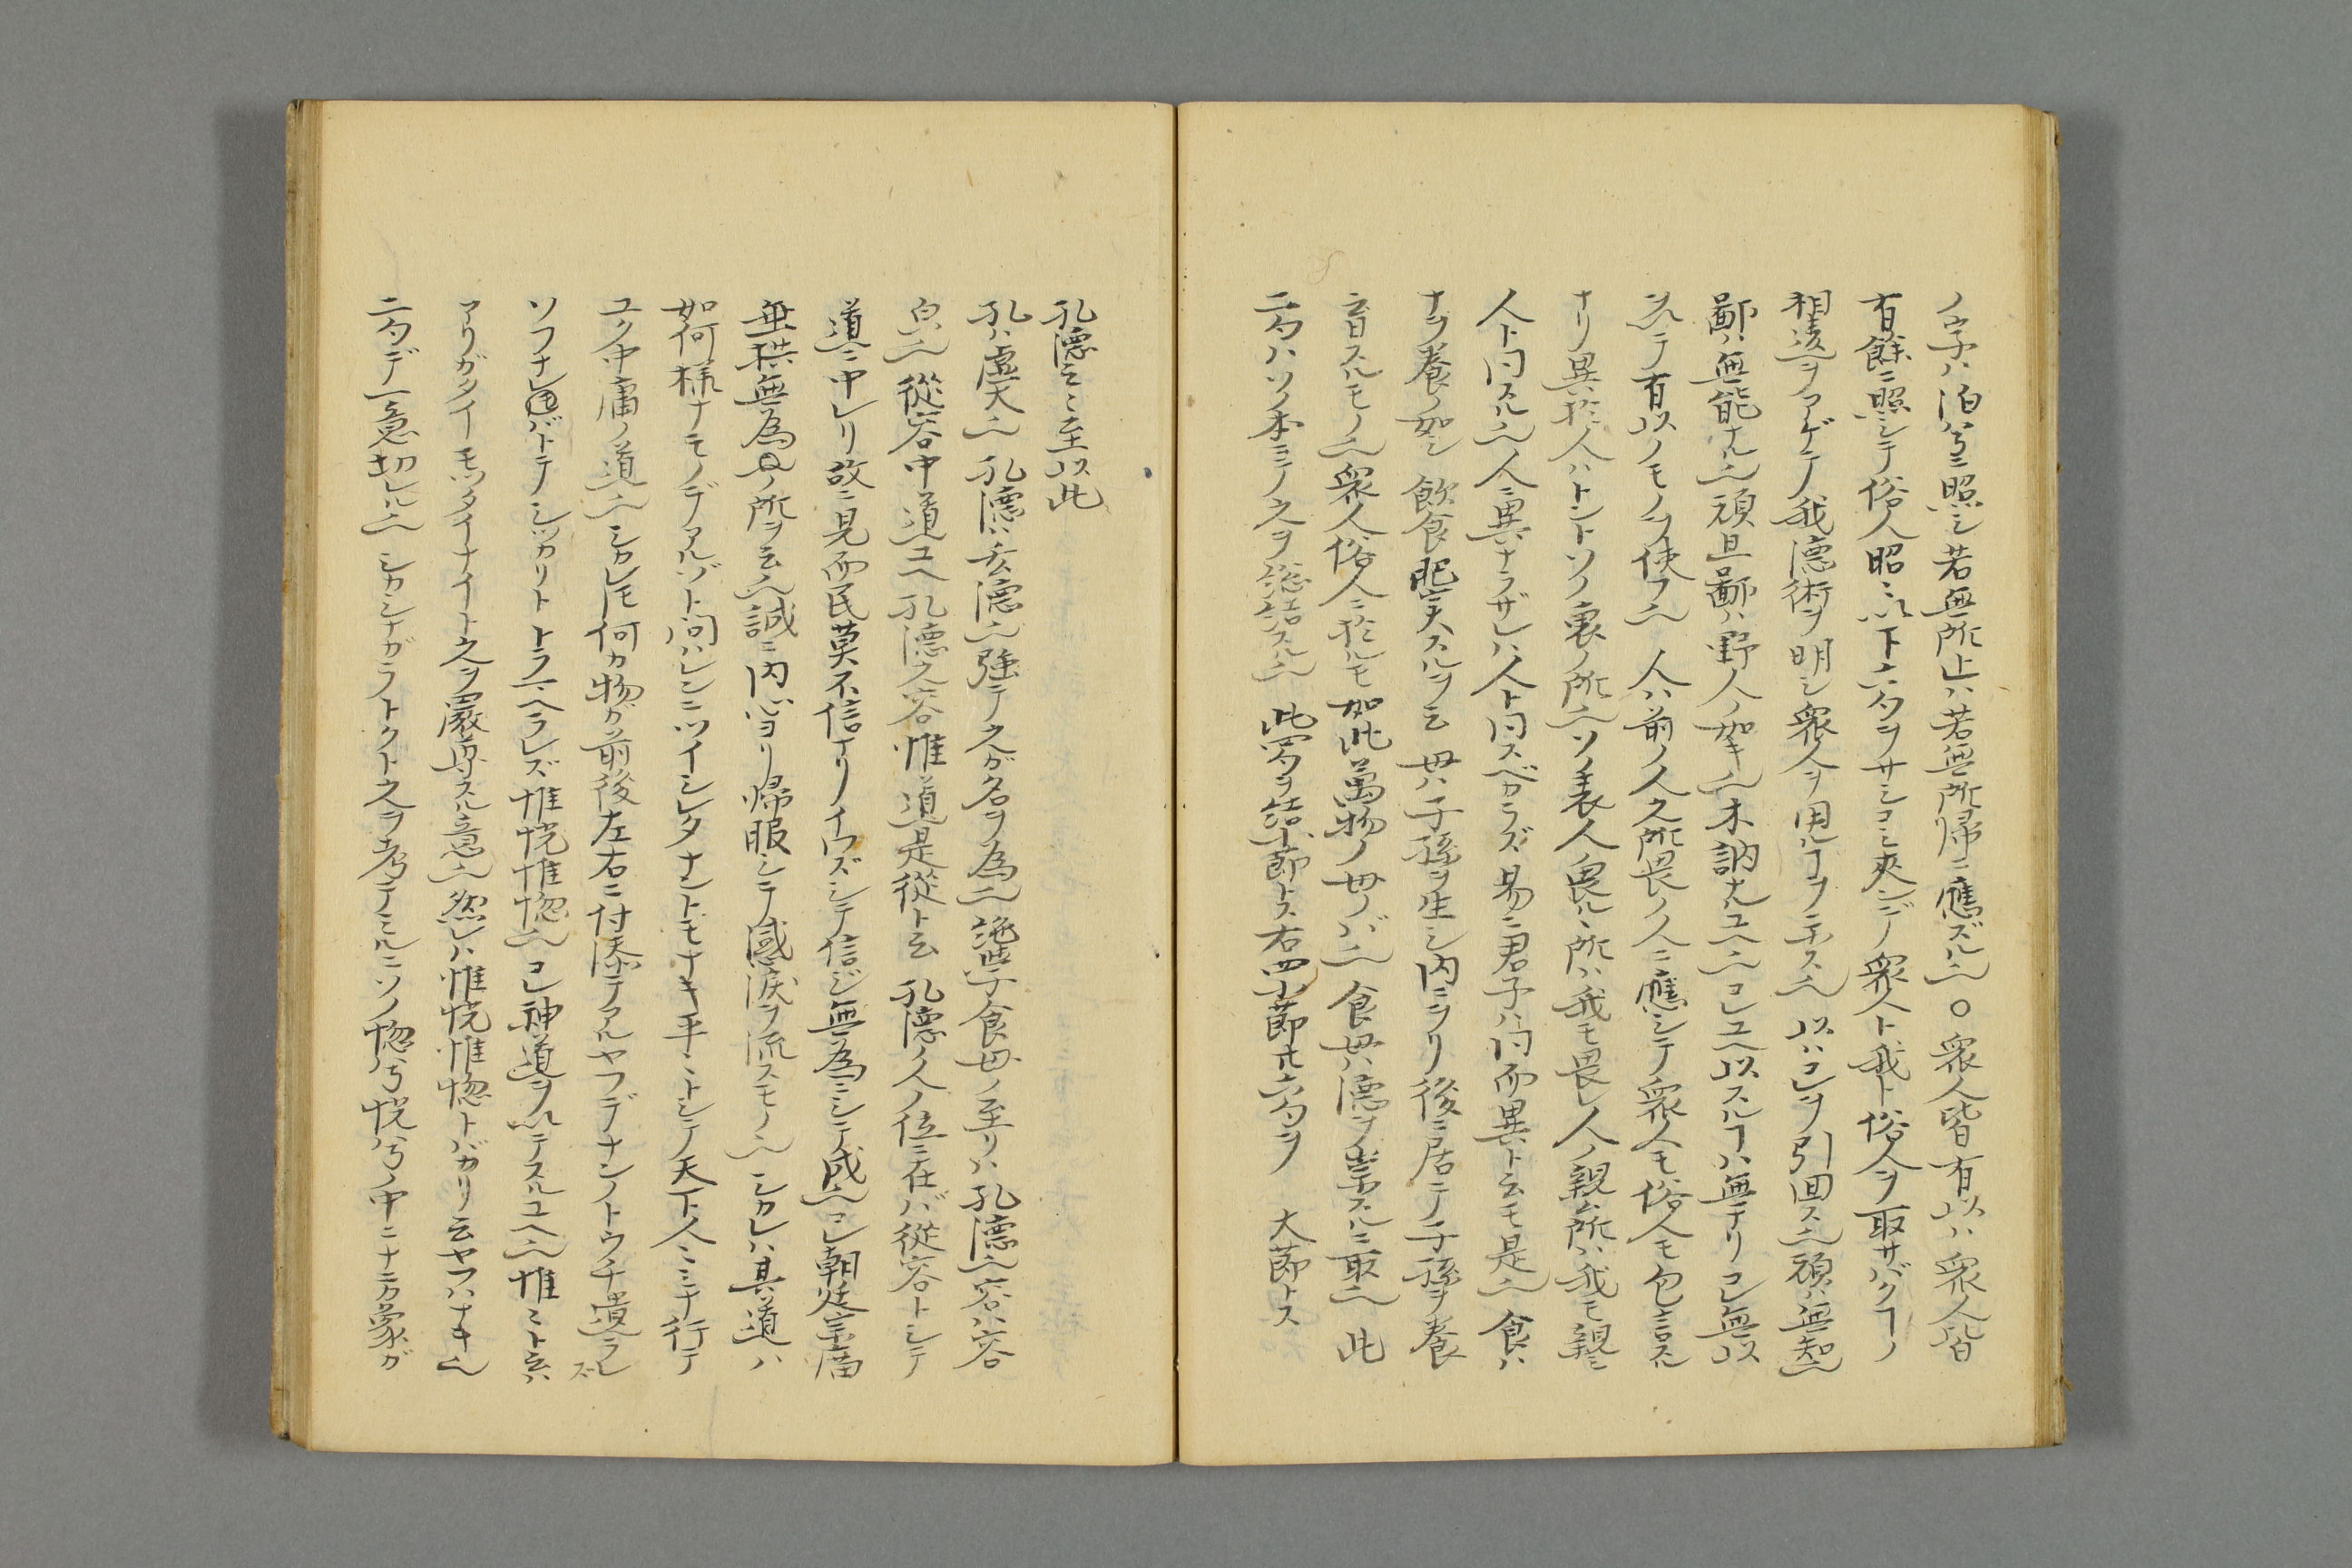 ノ字ハ泊兮ニ照シ若無所止ハ若無所帰ニ應ズル也〇衆人皆有以ハ衆人皆
有餘ニ照シテ俗人昭ミ以下六句ヲサシコミ夾ンデ衆人ト我ト俗人ヲ取サバクヿノ
相違ヲアゲテ我德術ヲ明シ衆人ヲ用ルヿヲ示ス也 以ハコレヲ引回ス也頑ハ無知也
鄙ハ無能ナル也頑且鄙ハ野人ノ如キ也木訥ナルユヘ也コレユヘ以スルヿハ無テリコレ無以
シテ有以ノモノヲ使フ也 人ハ前ノ人之所畏ノ人ニ應シテ衆人モ俗人モ包言スル
ナリ異於人ハトントソノ裏ノ所也ソノ表人畏ルヽ所ハ我モ畏レ人ノ親ム所ハ我モ親ミ
人ト同スル也人ニ異ナラザレハ人ト同スベカラズ易ニ君子ハ同而異ト云モ是也 食ハ
ナヲ養ノ如シ飲食肥実スルヲ云 母ハ子孫ヲ生シ内ニヲリ後ニ居テ子孫ヲ養
育スルモノ也衆人俗人ニ於ルモ如此萬物ノ母ノバ也食母ハ德ヲ崇スルニ取也 此
二句ハソノ本ミテ之ヲ総結スル也 此四句ヲ結小節トス右四小節廿六句ヲ 大節トス
孔德云ミ至以此
孔ハ虚大也 孔德ハ玄德也強テ之ガ名ヲ為也絶学食母ノ至リハ孔德也容ハ容
皃也 從容中道ユヘ孔德之容惟道是從ト云 孔德ノ人ノ位ニ在バ從容トシテ
道ニ中レリ故ニ見而民莫不信ナリイワズシテ信ジ無為ニシテ成也コレ朝廷宗庿
垂拱無為ノ所ヲ云也誠ニ内心ヨリ帰服シテ感涙ヲ流スモノ也 シカレハ其道ハ
如何様ナモノデアルゾト問ハレンニツイシレタナントモナキ平ミトシテ天下人ミミナ行テ
ユク中庸ノ道也シカレモ何カ物ガ前後左右ニ付添テアルヤフデナンノトウチ遺ラレズ
ソフナレ𪜈バトテシッカリトトラマヘラレズ惟恍惟惚也コレ神道ヲ以テスルユヘ也惟ミト云ハ
アリガタイモッタイナイト之ヲ嚴尊スル意也然レハ惟恍惟惚トバカリ云ヤフハナキ也
二句デ一ト意切レル也 シカシナガラトクト之ヲ考テミルニソノ惚兮恍兮ノ中ニナニカ象ガ